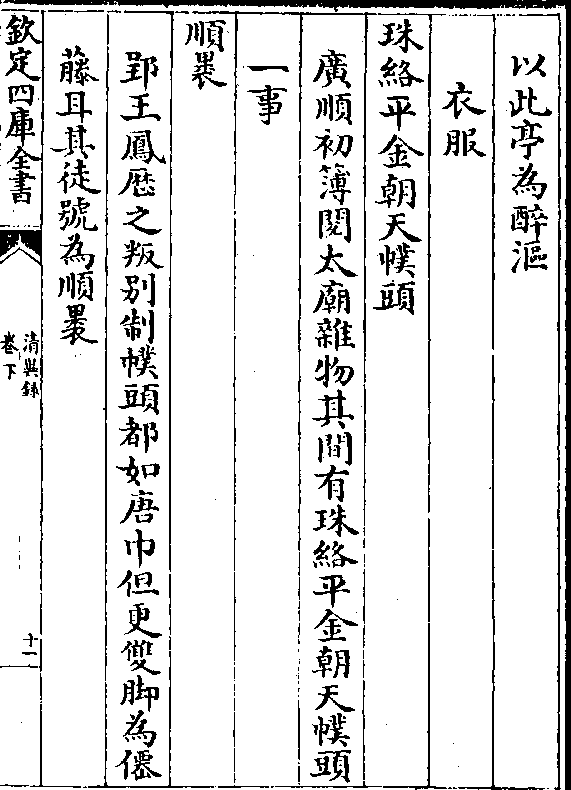 以此亭為醉漚
衣服
珠絡平金朝天幞頭
廣順初簿閱太廟雜物其間有珠絡平金朝天幞頭
一事
順褁
郢王鳳厯之叛别制幞頭都如唐巾但更雙脚為僊
藤耳其徒號為順褁
欽定四庫全書
清異録
卷下
十一